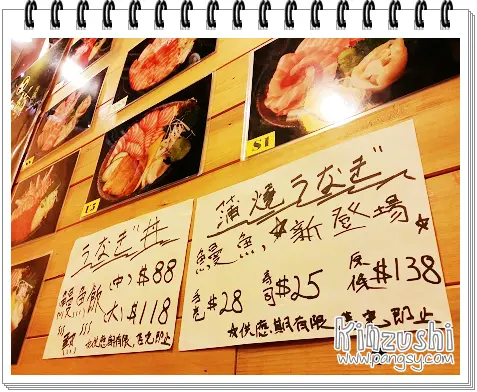 S1
15
うなぎ丼
鰻魚飯 (中) $88
(大) $118
供應有限，售完即止
蒲燒うなぎ
鰻魚，★新登場★
$28
壽司 $25
$138
供應期有限，售完即止
Kinzushi
www.pangsy.com